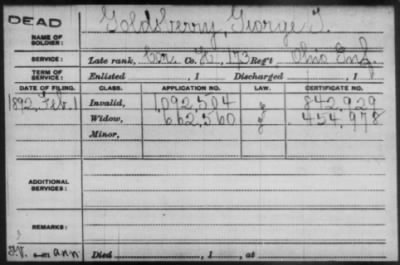 DEAD
NAME OF SOLDIER: Goldsberry, George T.
SERVICE: Late rank, Cor. Co. H, 173 Reg't Ohio Inf.
TERM OF SERVICE: Enlisted , 1 Discharged , 1
DATE OF FILING. CLASS. APPLICATION NO. LAW. CERTIFICATE NO.
1892, Feb. 1 Invalid, 1,092,504 842,929
Widow, 662,560 454,978
Minor,
ADDITIONAL SERVICES:
REMARKS:
ann Died , 1 , at